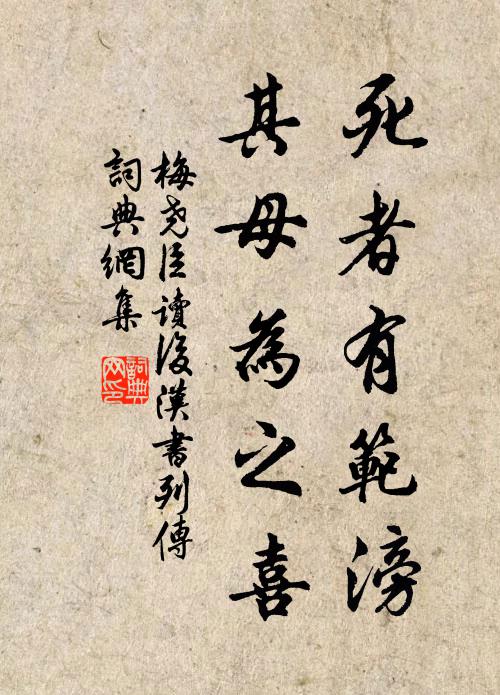 死者有範滂
其母為之喜
梅堯臣讀後漢書列傳
詞典網集
詞典
网印